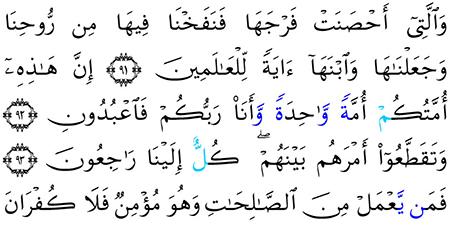 وَٱلَّتِىٓ أَحْصَنَتْ فَرْجَهَا فَنَفَخْنَا فِيهَا مِن رُّوحِنَا
وَجَعَلْنَٰهَا وَٱبْنَهَآ ءَايَةً لِّلْعَٰلَمِينَ ۝٩١ إِنَّ هَٰذِهِۦٓ
أُمَّتُكُمْ أُمَّةً وَٰحِدَةً وَأَنَا۠ رَبُّكُمْ فَٱعْبُدُونِ ۝٩٢
وَتَقَطَّعُوٓا۟ أَمْرَهُم بَيْنَهُمْ ۖ كُلٌّ إِلَيْنَا رَٰجِعُونَ ۝٩٣
فَمَن يَعْمَلْ مِنَ ٱلصَّٰلِحَٰتِ وَهُوَ مُؤْمِنٌ فَلَا كُفْرَانَ